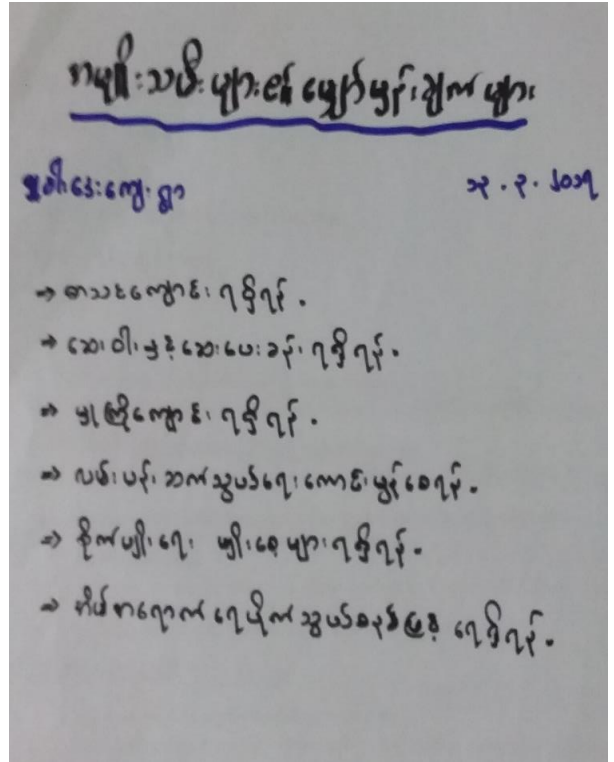 အမျိုးသမီးများ၏ မျှော်မှန်းချက်များ
ကျေးရွာ ၁၃.၃.၂၀၁၇
→ စာသင်ကျောင်းရရှိရန်.
→ ဆေးဝါးနှင့်ဆေးပေးခန်းရရှိရန်.
→ မူကြိုကျောင်းရရှိရန်.
→ လမ်းပန်းဆက်သွယ်ရေးကောင်းမွန်စေရန်.
→ စိုက်ပျိုးရေး မျိုးစေ့များရရှိရန်.
→ အိမ်အရောက်ရေပိုက်သွယ်စနစ်ဖြင့် ရေရှိရန်.